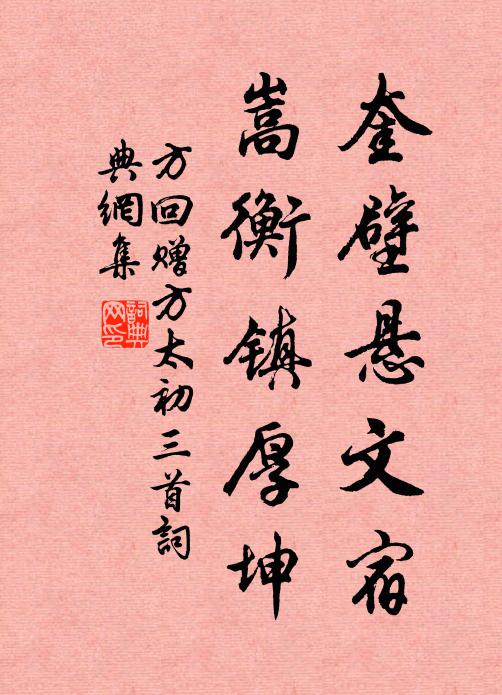 奎壁悬文宿
嵩衡镇厚坤
方回赠方太初三首词
典網集
詞典网印